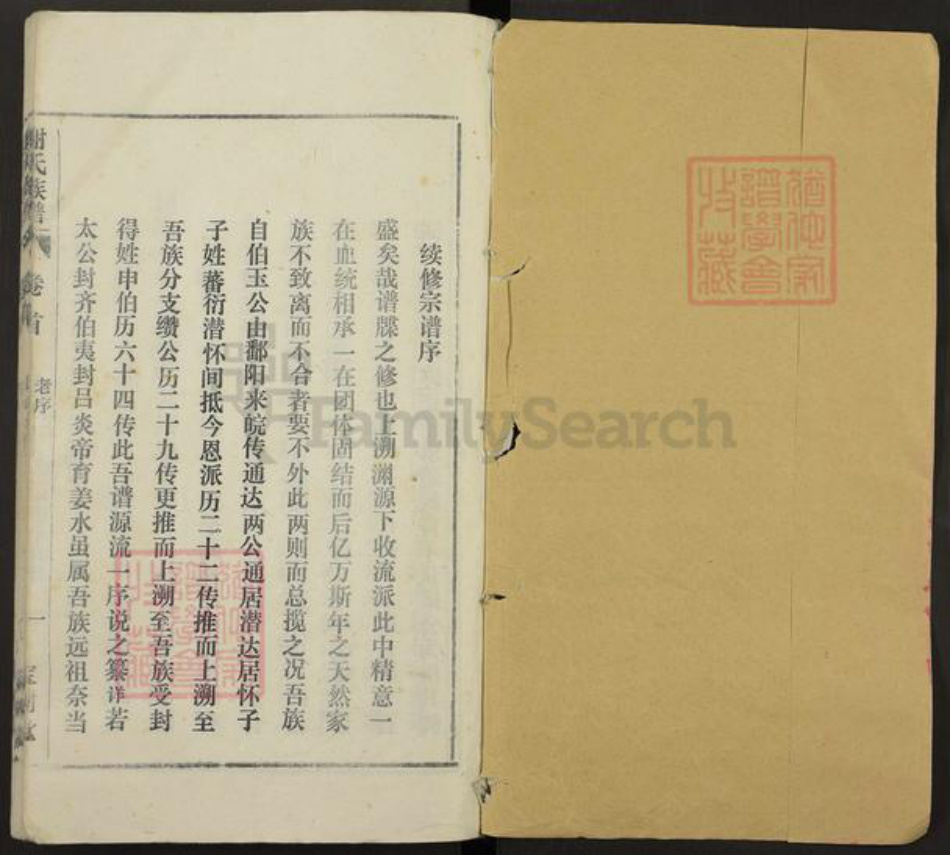 续修宗谱序
盛矣哉谱牒之修也上溯渊源下收流派此中精意一
在血统相承一在团体固结而后亿万斯年之天然家
族不致离而不合者要不外此两则而总揽之况吾族
自伯玉公由鄱阳来皖传通达两公通居潜达居怀子
子姓蕃衍潜怀间抵今恩派历二十二传推而上溯至
吾族分支缵公历二十九传更推而上溯至吾族受封
得姓申伯历六十四传此吾谱源流一序说之綦详若
太公封齐伯夷封吕炎帝育姜水虽属吾族远祖奈当
谢氏族谱
卷首
老序
一
FamilySearch
谱学会
收藏